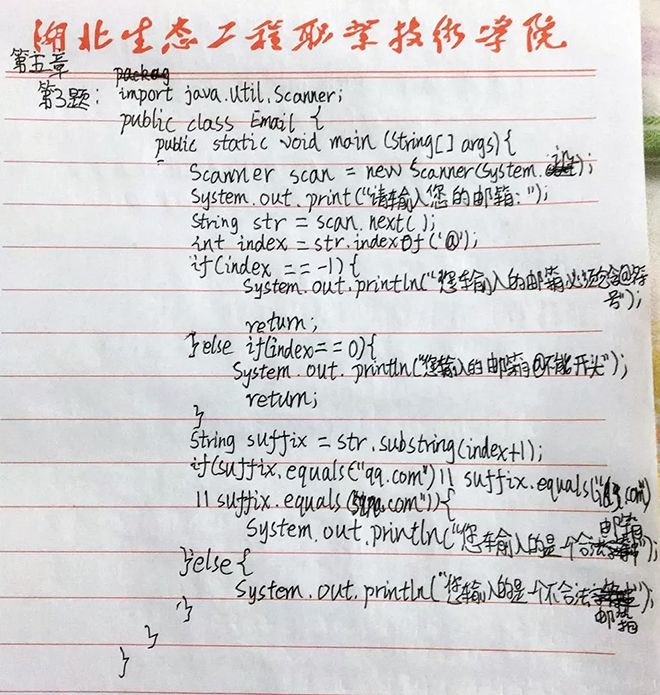 湖北生态工程职业技术学院
第五章
第3题: import java.util.Scanner;
public class Email {
public static void main (String[] args){
Scanner scan = new Scanner(System.in);
System.out.print("请输入您的邮箱:");
String str = scan.next();
int index = str.indexOf('@');
if(index == -1){
System.out.println("您输入的邮箱必须包含@符
号");
return;
}else if(index == 0){
System.out.println("您输入的邮箱@不能开头");
return;
}
String suffix = str.substring(index+1);
if(suffix.equals("qq.com") || suffix.equals(".com")
|| suffix.equals(".com")){
System.out.println("您输入的是一个合法邮箱");
}else{
System.out.println("您输入的是一个不合法
邮箱");
}
}
}